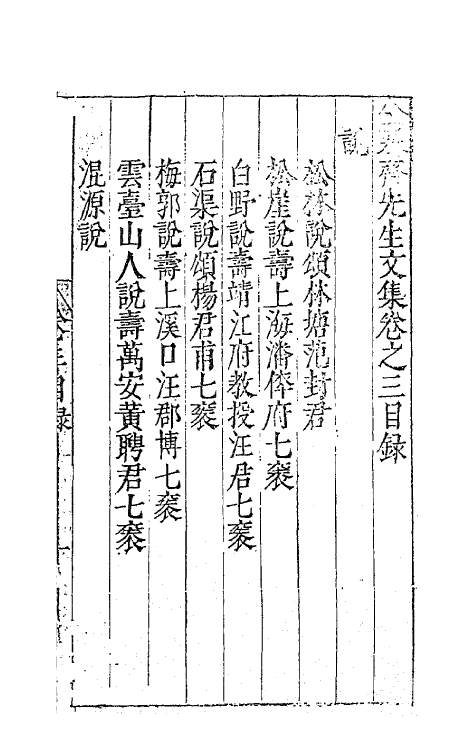 齋先生文集卷之三目録
說
松林說頌林塘范封君
松崖說壽上海潘倅府七袠
白野說壽靖江府教授汪君七袠
石渠說頌楊君甫七袠
梅郭說壽上溪口汪郡博七袠
雲臺山人說壽萬安黃聘君七袠
混源說
卷三目録